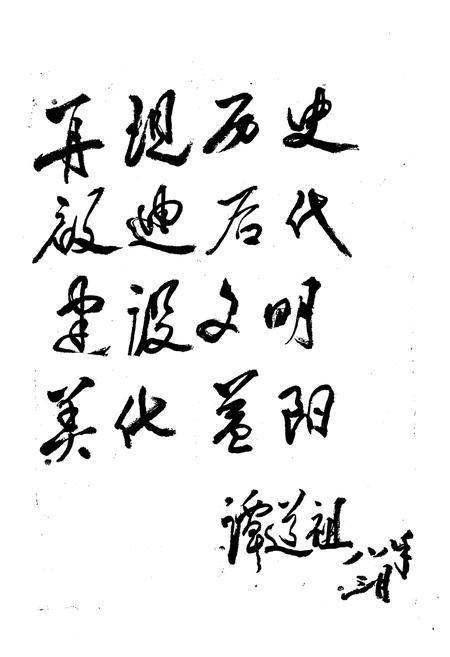 再现历史
启迪后代
建设文明
美化益阳
谭道祖
八年
三月